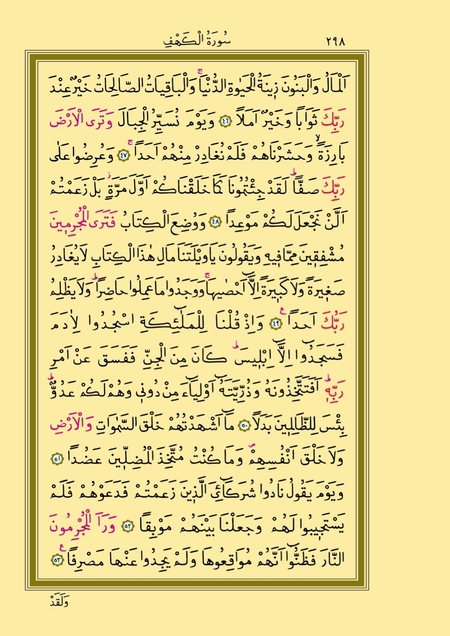 ٢٩٨
سُورَةُ الْكَهْفِ
اَلْمَالُ وَالْبَنُونَ زِينَةُ الْحَيٰوةِ الدُّنْيَاۚ وَالْبَاقِيَاتُ الصَّالِحَاتُ خَيْرٌ عِنْدَ
رَبِّكَ ثَوَابًا وَخَيْرٌ اَمَلًا ﴿٤٦﴾ وَيَوْمَ نُسَيِّرُ الْجِبَالَ وَتَرَى الْاَرْضَ
بَارِزَةًۙ وَحَشَرْنَاهُمْ فَلَمْ نُغَادِرْ مِنْهُمْ اَحَدًاۚ ﴿٤٧﴾ وَعُرِضُوا عَلٰى
رَبِّكَ صَفًّاۜ لَقَدْ جِئْتُمُونَا كَمَا خَلَقْنَاكُمْ اَوَّلَ مَرَّةٍۘ بَلْ زَعَمْتُمْ
اَلَّنْ نَجْعَلَ لَكُمْ مَوْعِدًا ﴿٤٨﴾ وَوُضِعَ الْكِتَابُ فَتَرَى الْمُجْرِمِينَ
مُشْفِقِينَ مِمَّا فِيهِ وَيَقُولُونَ يَاوَيْلَتَنَا مَالِ هٰذَا الْكِتَابِ لَا يُغَادِرُ
صَغِيرَةً وَلَا كَبِيرَةً اِلَّٓا اَحْصٰيهَاۚ وَوَجَدُوا مَا عَمِلُوا حَاضِرًاۜ وَلَا يَظْلِمُ
رَبُّكَ اَحَدًا۟ ﴿٤٩﴾ وَاِذْ قُلْنَا لِلْمَلٰٓئِكَةِ اسْجُدُوا لِاٰدَمَ
فَسَجَدُٓوا اِلَّٓا اِبْلِيسَۜ كَانَ مِنَ الْجِنِّ فَفَسَقَ عَنْ اَمْرِ
رَبِّهِۜ اَفَتَتَّخِذُونَهُ وَذُرِّيَّتَهُٓ اَوْلِيَٓاءَ مِنْ دُونِي وَهُمْ لَكُمْ عَدُوٌّۜ
بِئْسَ لِلظَّالِمِينَ بَدَلًا ﴿٥٠﴾ مَٓا اَشْهَدْتُهُمْ خَلْقَ السَّمٰوَاتِ وَالْاَرْضِ
وَلَا خَلْقَ اَنْفُسِهِمْۖ وَمَا كُنْتُ مُتَّخِذَ الْمُضِلِّينَ عَضُدًا ﴿٥١﴾
وَيَوْمَ يَقُولُ نَادُوا شُرَكَٓائِيَ الَّذِينَ زَعَمْتُمْ فَدَعَوْهُمْ فَلَمْ
يَسْتَجِيبُوا لَهُمْ وَجَعَلْنَا بَيْنَهُمْ مَوْبِقًا ﴿٥٢﴾ وَرَاَ الْمُجْرِمُونَ
النَّارَ فَظَنُّٓوا اَنَّهُمْ مُوَاقِعُوهَا وَلَمْ يَجِدُوا عَنْهَا مَصْرِفًا۟ ﴿٥٣﴾
وَلَقَدْ